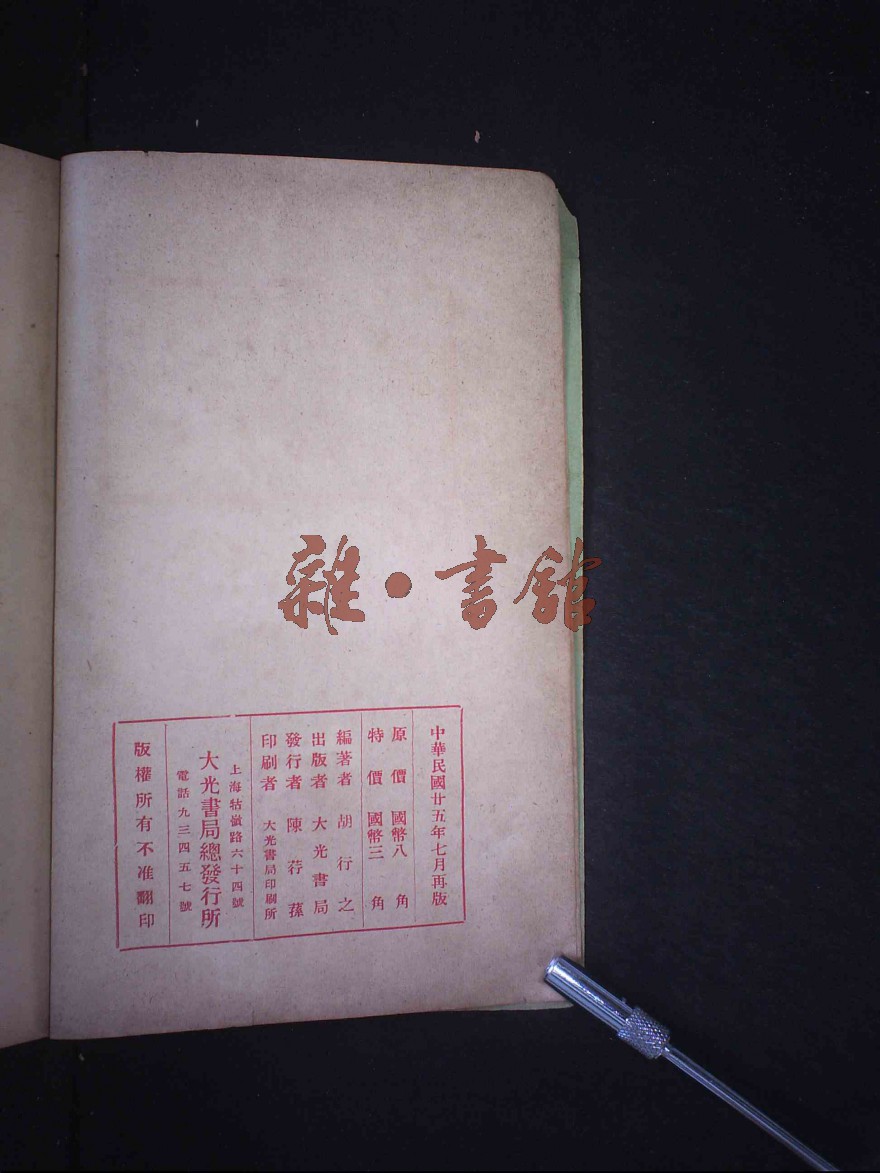 中華民國廿五年七月再版
原價 國幣八角
特價 國幣三角
編著者 胡行之
出版者 大光書局
發行者 陳荇蓀
印刷者 大光書局印刷所
上海牯嶺路六十四號
大光書局總發行所
電話九三四五七號
版權所有不准翻印
雜·書館